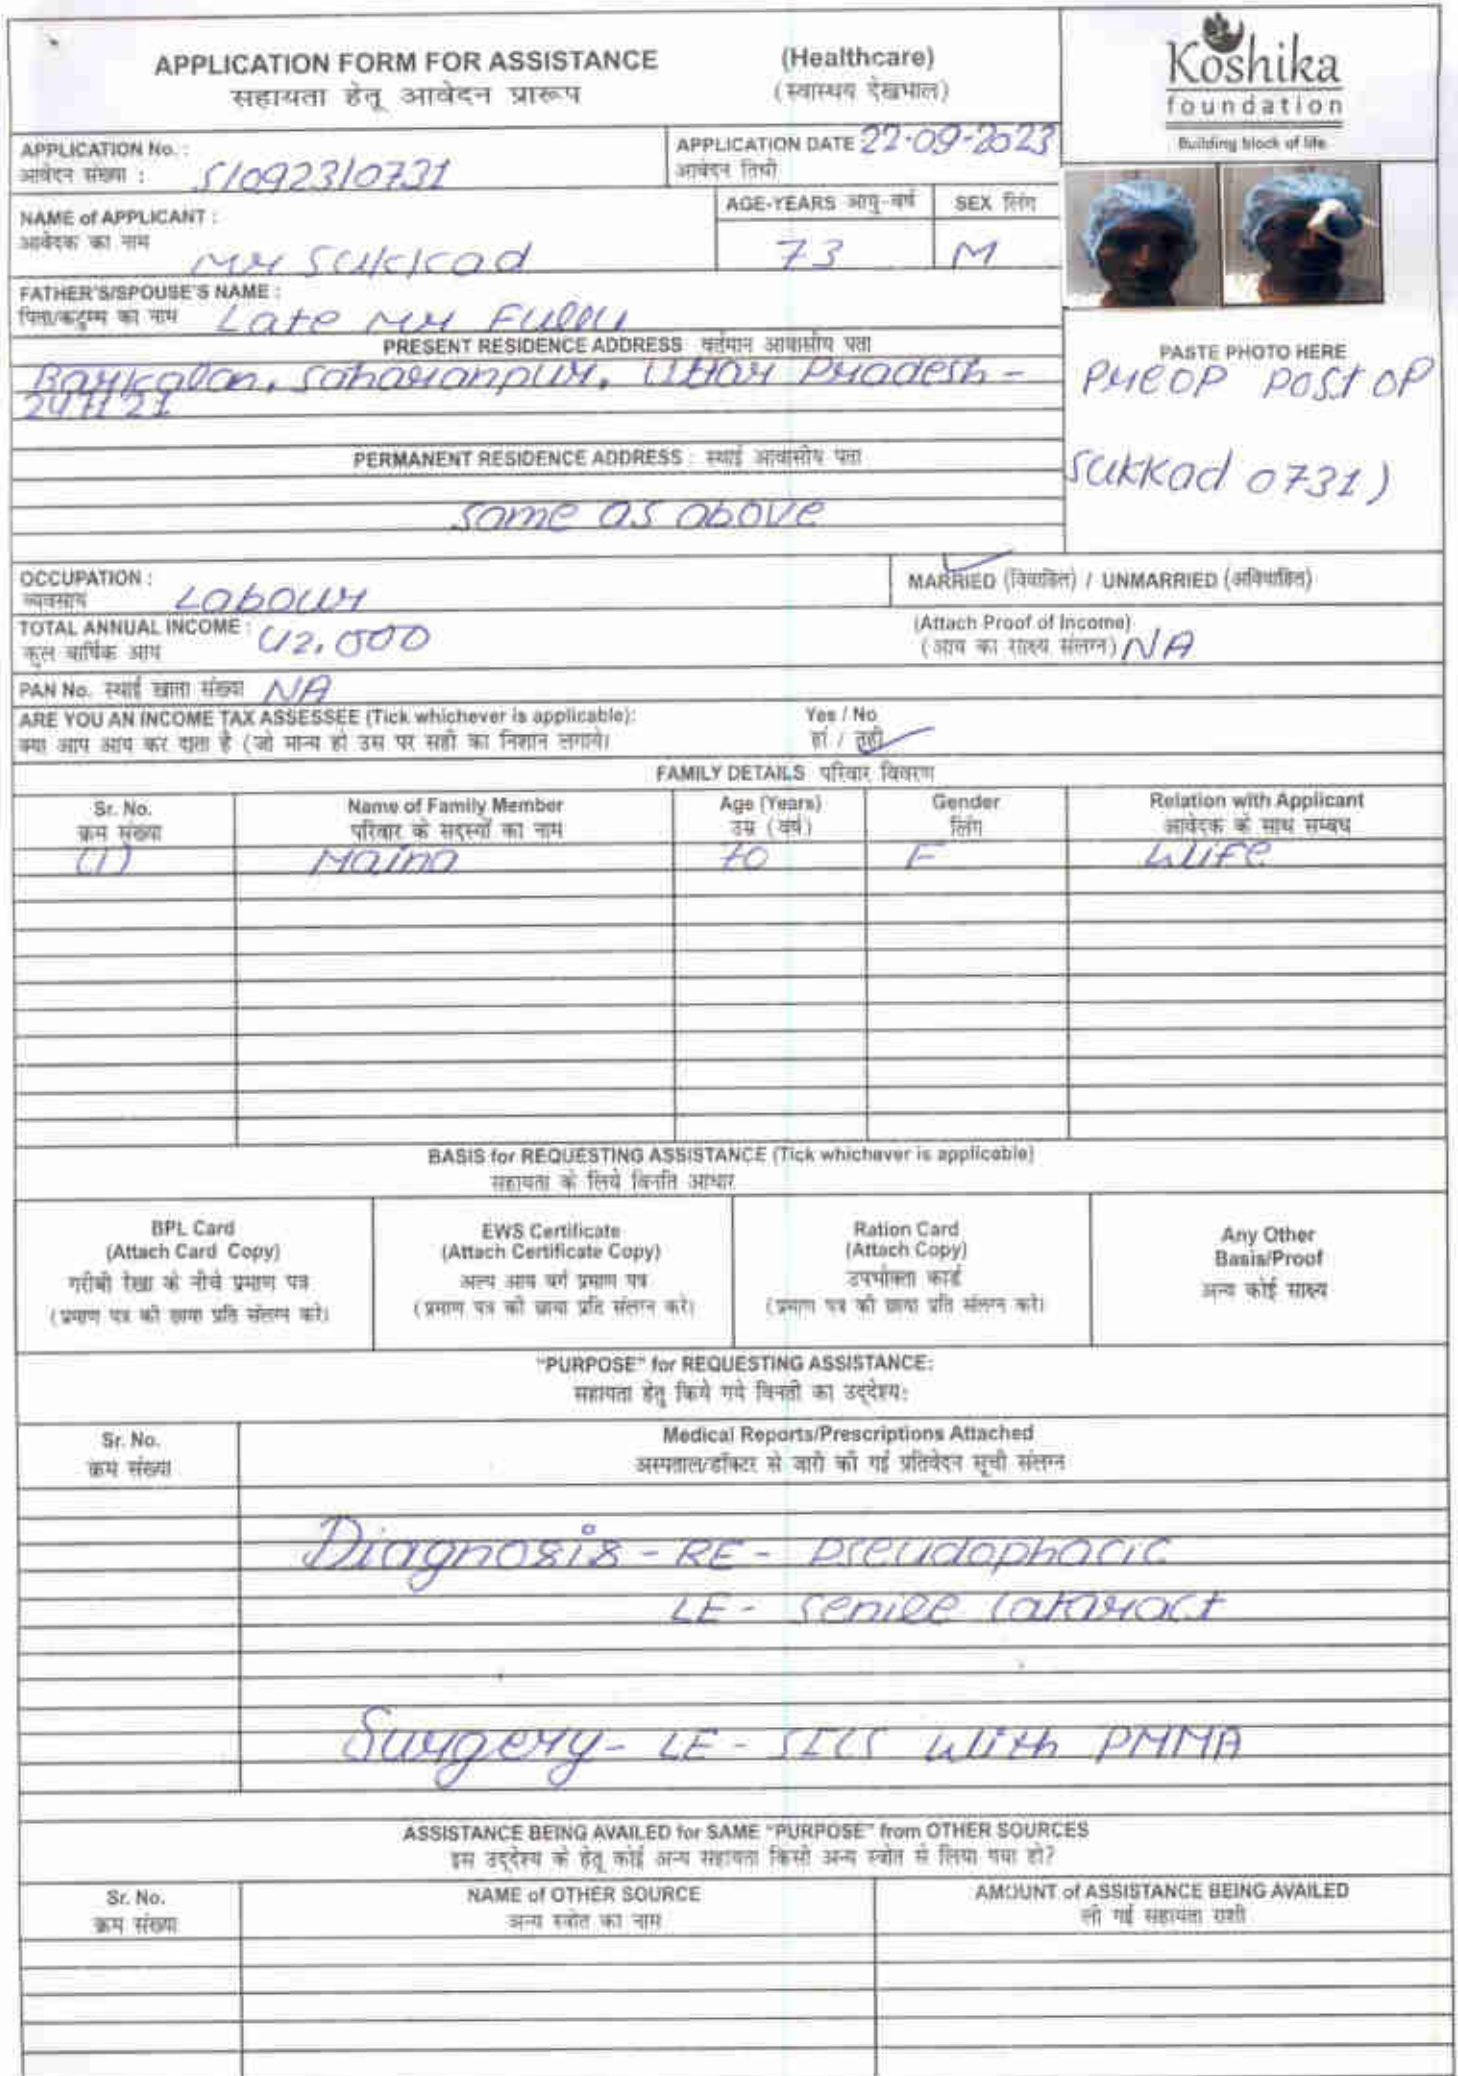 APPLICATION FORM FOR ASSISTANCE (Healthcare)
सहायता हेतू आवेदन प्रारूप (स्वास्थय देखभाल)
Koshika
foundation
Building block of life
APPLICATION No. : S/0923/0731
आवेदन संख्या :
APPLICATION DATE 22-09-2023
आवेदन तिथी
NAME of APPLICANT : Mr Sukkad
आवेदक का नाम
AGE-YEARS आयु-वर्ष 73
SEX लिंग M
FATHER'S/SPOUSE'S NAME : Late Mr Fullu
पिता/कटुम्ब का नाम
PRESENT RESIDENCE ADDRESS वर्तमान आवासीय पता
Barkalan, Saharanpur, Uttar Pradesh -
247121
PASTE PHOTO HERE
Preop Post op
Sukkad 0731)
PERMANENT RESIDENCE ADDRESS : स्थाई आवासीय पता
same as above
OCCUPATION : Labour
व्यवसाय
MARRIED (विवाहित) / UNMARRIED (अविवाहित)
TOTAL ANNUAL INCOME : 42,000
कुल वार्षिक आय
(Attach Proof of Income)
(आय का साक्ष्य संलग्न) NA
PAN No. स्थाई खाता संख्या NA
ARE YOU AN INCOME TAX ASSESSEE (Tick whichever is applicable): Yes / No
क्या आप आय कर दाता है (जो मान्य हो उस पर सही का निशान लगाये। हां / नही
FAMILY DETAILS परिवार विवरण
Sr. No. Name of Family Member Age (Years) Gender Relation with Applicant
क्रम संख्या परिवार के सदस्यों का नाम उम्र (वर्ष) लिंग आवेदक के साथ सम्बध
(1) Maina 70 F Wife
BASIS for REQUESTING ASSISTANCE (Tick whichever is applicable)
सहायता के लिये विनति आधार
BPL Card
(Attach Card Copy)
गरीबी रेखा के नीचे प्रमाण पत्र
(प्रमाण पत्र की छाया प्रति संलग्न करे)
EWS Certificate
(Attach Certificate Copy)
अल्प आय वर्ग प्रमाण पत्र
(प्रमाण पत्र की छाया प्रति संलग्न करे)
Ration Card
(Attach Copy)
उपभोक्ता कार्ड
(प्रमाण पत्र की छाया प्रति संलग्न करे)
Any Other
Basis/Proof
अन्य कोई साक्ष्य
"PURPOSE" for REQUESTING ASSISTANCE:
सहायता हेतु किये गये विनती का उद्देश्य:
Sr. No. Medical Reports/Prescriptions Attached
क्रम संख्या अस्पताल/डॉक्टर से जारी की गई प्रतिवेदन सूची संलग्न
Diagnosis - RE - Pseudophacic
LE - Senile Cataract
Surgery - LE - SICS with PMMA
ASSISTANCE BEING AVAILED for SAME "PURPOSE" from OTHER SOURCES
इस उद्देश्य के हेतू कोई अन्य सहायता किसी अन्य स्त्रोत से लिया गया हो?
Sr. No. NAME of OTHER SOURCE AMOUNT of ASSISTANCE BEING AVAILED
क्रम संख्या अन्य स्त्रोत का नाम ली गई सहायता राशी